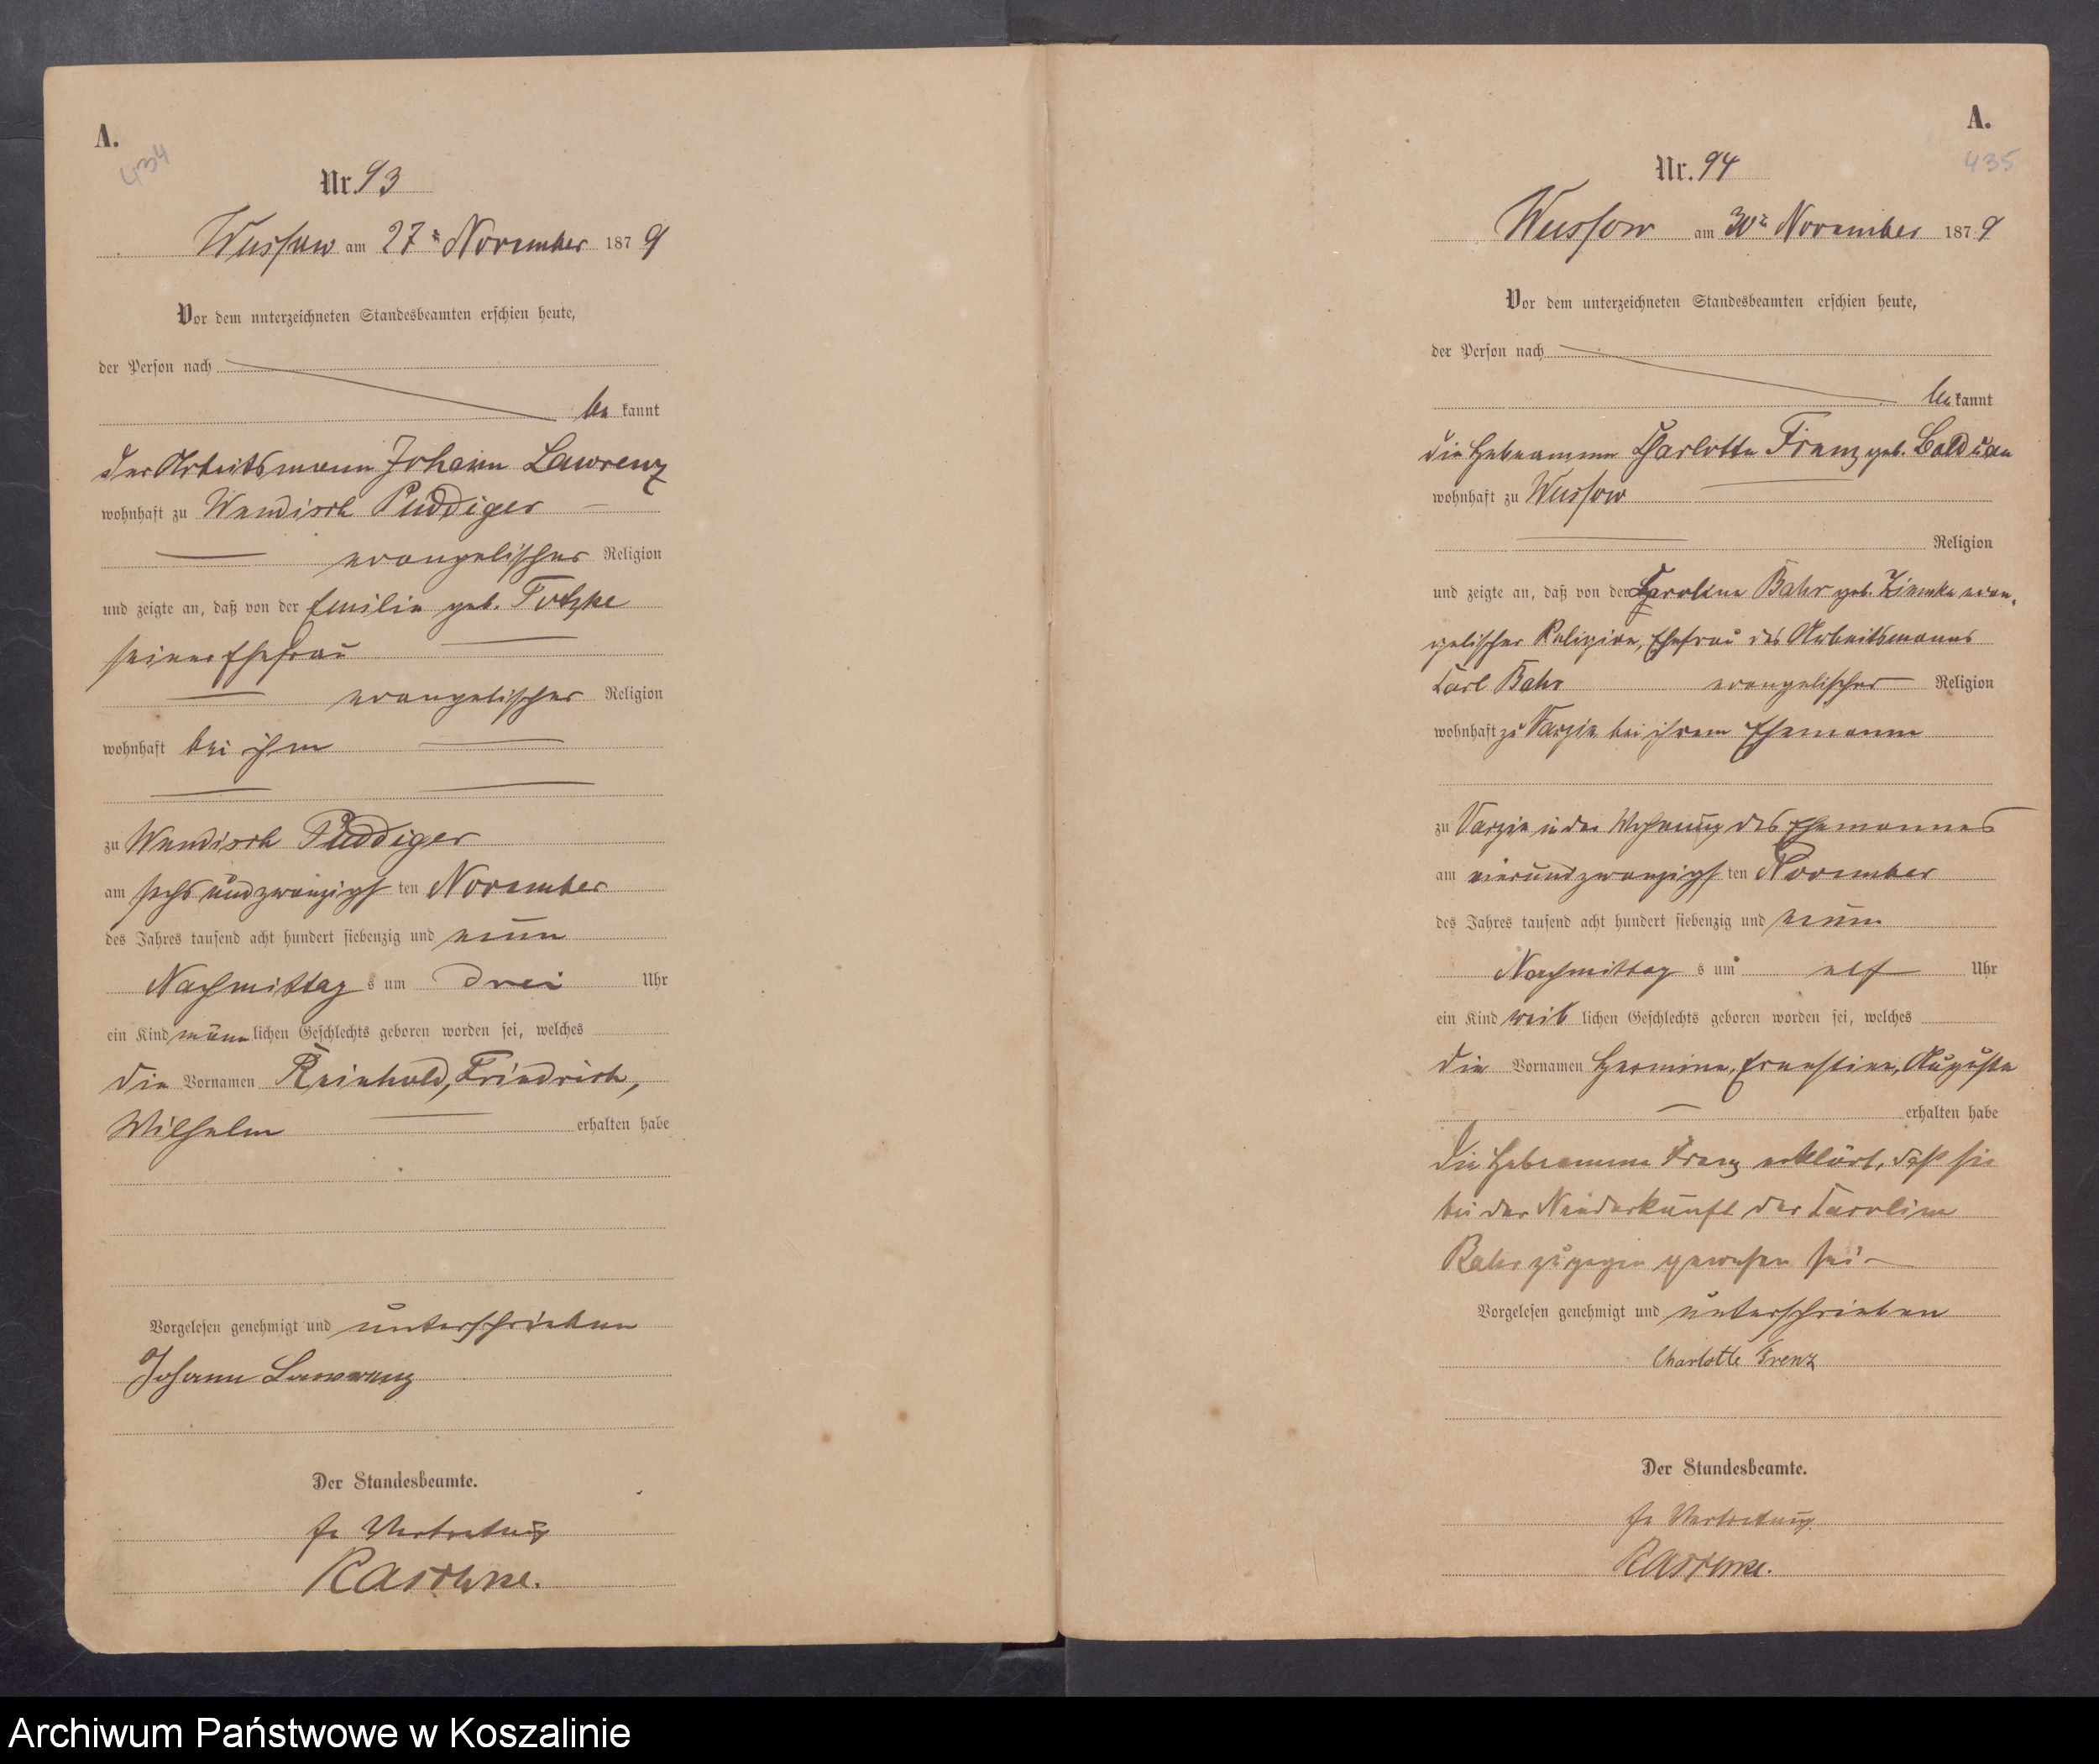 A.
434
Nr. 93
Wussow am 27ten November 1879
Vor dem unterzeichneten Standesbeamten erschien heute,
der Person nach
be kannt
der Arbeitsmann Johann Lawrenz
wohnhaft zu Wendisch Puddiger
evangelischer Religion
und zeigte an, daß von der Emilie geb. Totzke
seiner Ehefrau
evangelischer Religion
wohnhaft bei ihm
zu Wendisch Puddiger
am sechsundzwanzigsten November
des Jahres tausend acht hundert siebenzig und neun
Nachmittags um drei Uhr
ein Kind männlichen Geschlechts geboren worden sei, welches
die Vornamen Reinhold, Friedrich,
Wilhelm erhalten habe
Vorgelesen genehmigt und unterschrieben
Johann Lawrenz
Der Standesbeamte.
In Vertretung
A.
435
Nr. 94
Wussow am 30ten November 1879
Vor dem unterzeichneten Standesbeamten erschien heute,
der Person nach
be kannt
die Hebeamme Charlotte Frenz geb. Balduan
wohnhaft zu Wussow
Religion
und zeigte an, daß von der Caroline Bahr geb. Ziemke evan-
gelischer Religion, Ehefrau des Arbeitsmanns
Carl Bahr evangelischer Religion
wohnhaft zu Varzin bei ihrem Ehemann
zu Varzin in der Wohnung des Ehemannes
am vierundzwanzigsten November
des Jahres tausend acht hundert siebenzig und neun
Nachmittags um elf Uhr
ein Kind weiblichen Geschlechts geboren worden sei, welches
die Vornamen Hermine, Ernestine, Auguste
erhalten habe
Die Hebeamme Frenz erklärt, daß sie
bei der Niederkunft der Caroline
Bahr zugegen gewesen sei
Vorgelesen genehmigt und unterschrieben
Charlotte Frenz
Der Standesbeamte.
In Vertretung
Archiwum Państwowe w Koszalinie